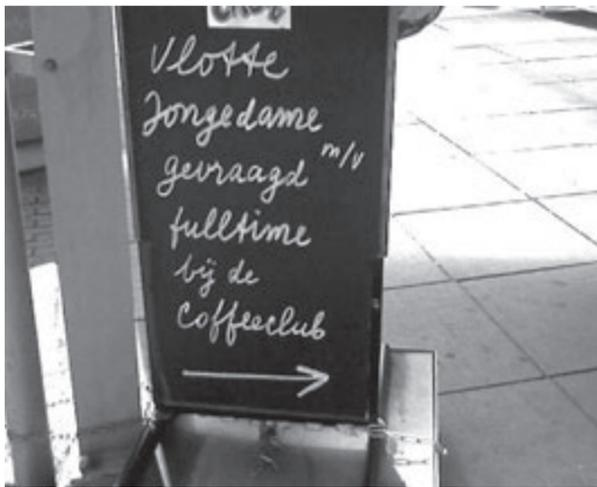 Vlotte
Jongedame
m/v
gevraagd
fulltime
bij de
Coffeeclub